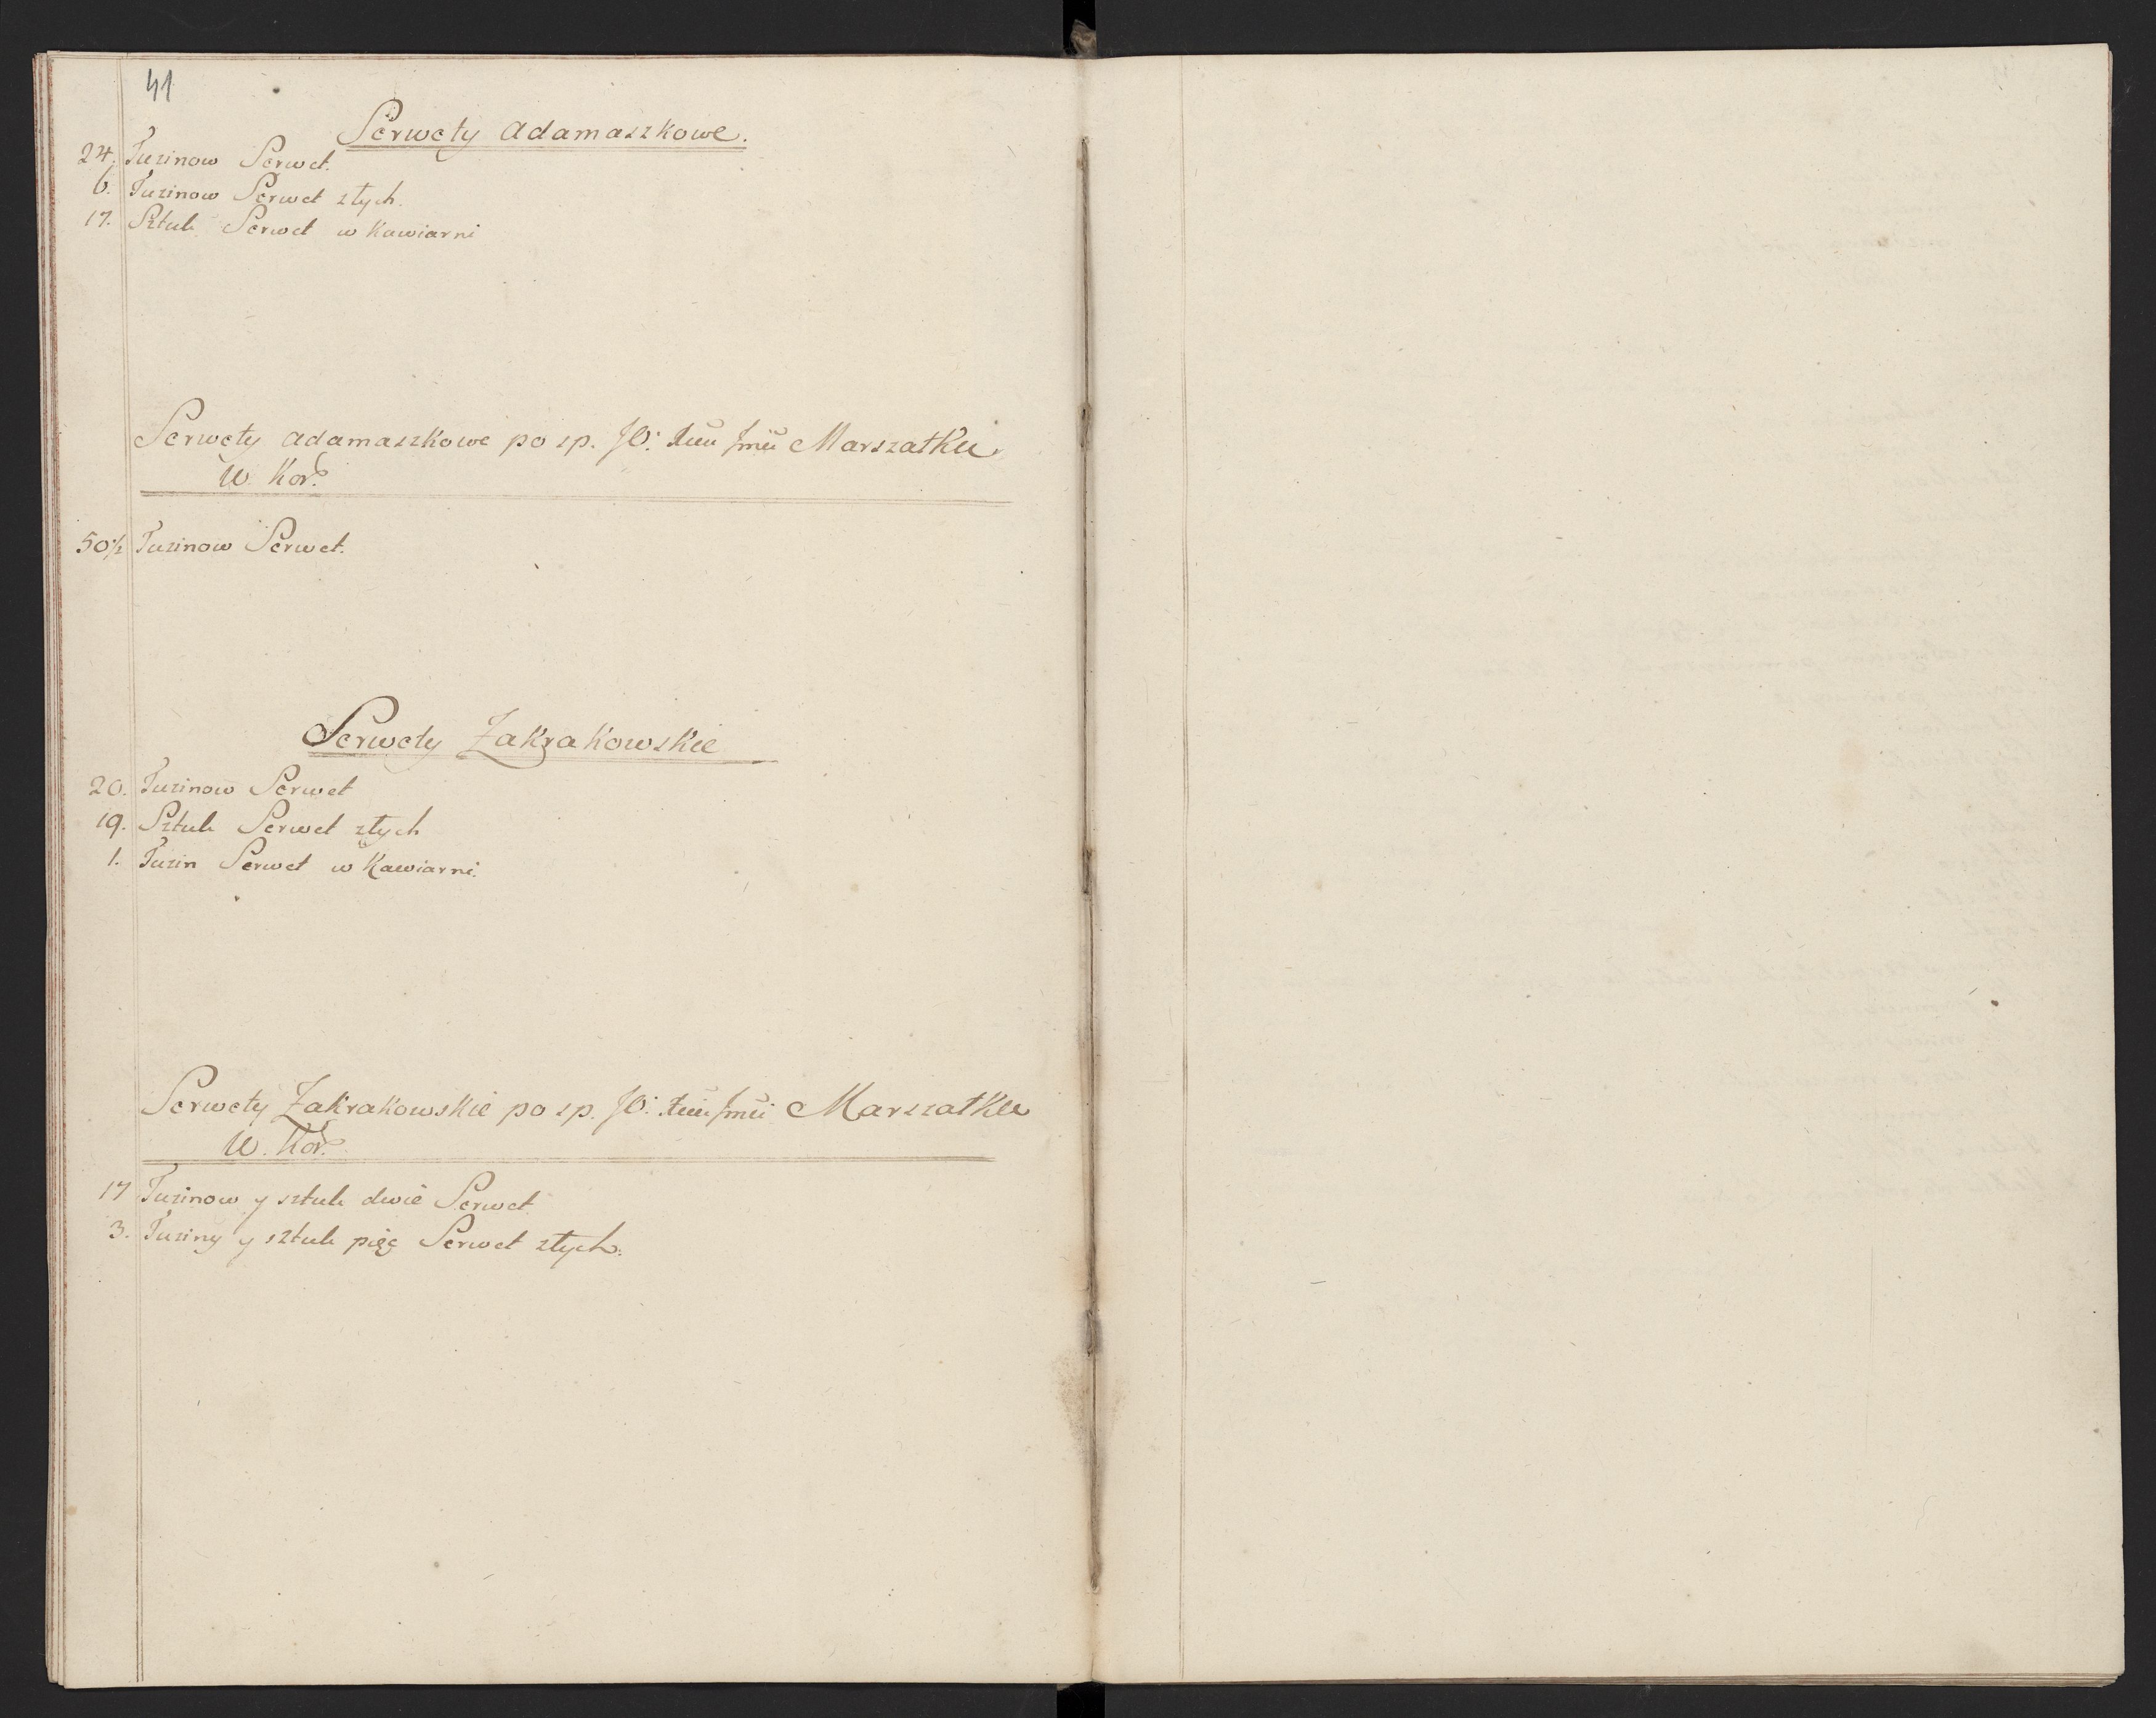 41
Serwety adamaszkowe.
24. Tuzinow Serwet.
6. Tuzinow Serwet złych.
17. Sztuk Serwet w Kawiarni
Serwety adamaszkowe po sp. JO: Xciu Jmci Marszałku
W. Kor.
50½ Tuzinow Serwet.
Serwety Zakrakowskie
20. Tuzinow Serwet
19. Sztuk Serwet złych
1. Tuzin Serwet w Kawiarni.
Serwety Zakrakowskie po sp. JO: Xciu Jmci Marszałku
W. Kor.
17 Tuzinow y sztuk dwie Serwet
3. Tuziny y sztuk pięć Serwet złych.